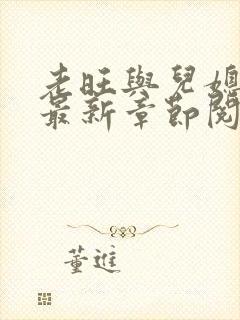 老旺與兒媳
最新章節閱
董進